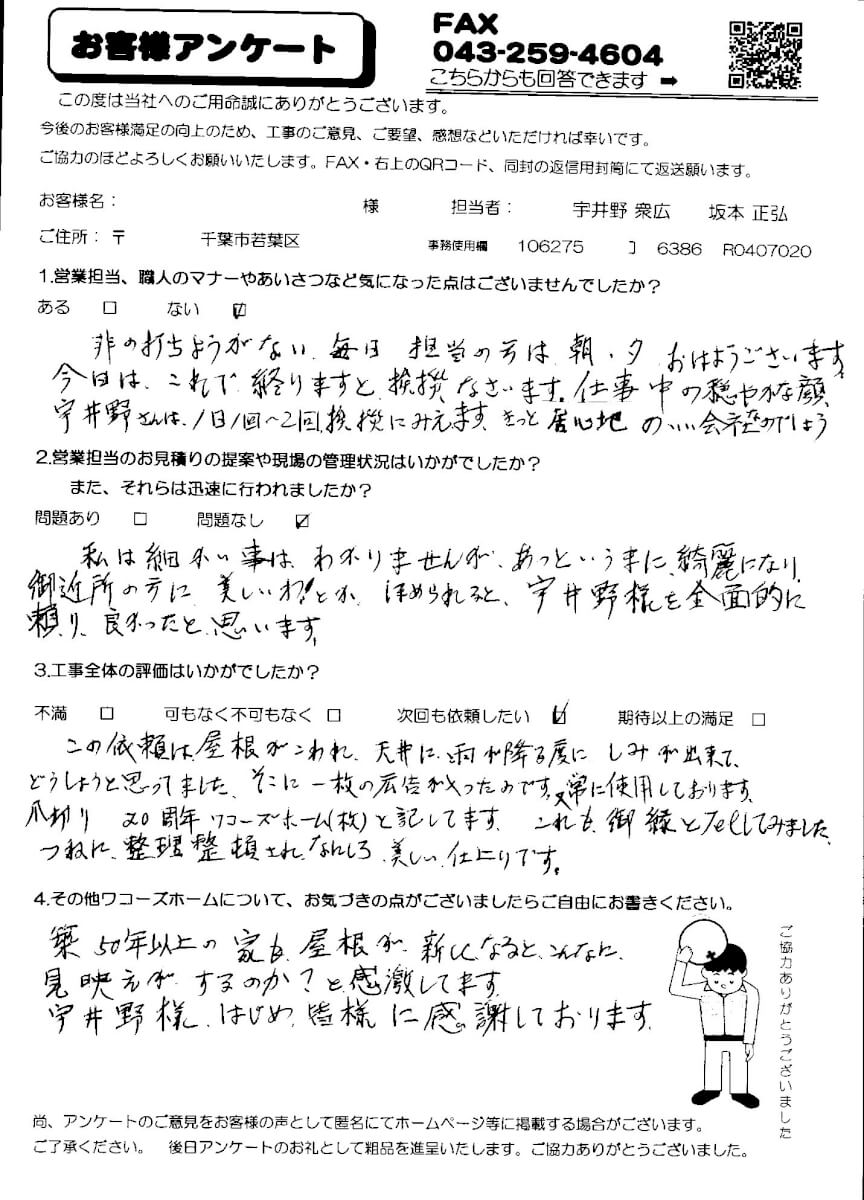 お客様アンケート
FAX
043-259-4604
こちらからも回答できます ➡
この度は当社へのご用命誠にありがとうございます。
今後のお客様満足の向上のため、工事のご意見、ご要望、感想などいただければ幸いです。
ご協力のほどよろしくお願いいたします。FAX・右上のQRコード、同封の返信用封筒にて返送願います。
お客様名： 様 担当者： 宇井野 衆広 坂本 正弘
ご住所：〒 千葉市若葉区 事務使用欄 106275 ] 6386 R0407020
1.営業担当、職人のマナーやあいさつなど気になった点はございませんでしたか？
ある □ ない ☑
非の打ちようがない、毎日 担当の方は、朝・夕 おはようございます、
今日は、これで終りますと、挨拶なさいます。仕事中の穏やかな顔、
宇井野さんは、1日1回～2回挨拶にみえます。きっと居心地のいい会社なのでしょう
2.営業担当のお見積りの提案や現場の管理状況はいかがでしたか？
また、それらは迅速に行われましたか？
問題あり □ 問題なし ☑
私は細かい事は、わかりませんが、あっというまに、綺麗になり、
御近所の方に、美しいわ！とか、ほめられると、宇井野様を全面的に
頼り、良かったと、思います。
3.工事全体の評価はいかがでしたか？
不満 □ 可もなく不可もなく □ 次回も依頼したい ☑ 期待以上の満足 □
この依頼は、屋根がこわれ、天井に、雨が降る度に しみが出来て、
どうしようと思ってました、そこに一枚の広告が入ったのです。又常に使用しております。
爪切り 20周年 ワコーズホーム(枚)と記してます。これも、御縁とTelしてみました。
つねに、整理整頓され、なんしろ、美しい仕上りです。
4.その他ワコーズホームについて、お気づきの点がございましたらご自由にお書きください。
築50年以上の家も、屋根が、新しくなると、こんなに、
見映えが、するのか？と、感激してます。
宇井野様、はじめ、皆様に感謝しております。
ご協力ありがとうございました
尚、アンケートのご意見をお客様の声として匿名にてホームページ等に掲載する場合がございます。
ご了承ください。 後日アンケートのお礼として粗品を進呈いたします。ご協力ありがとうございました。